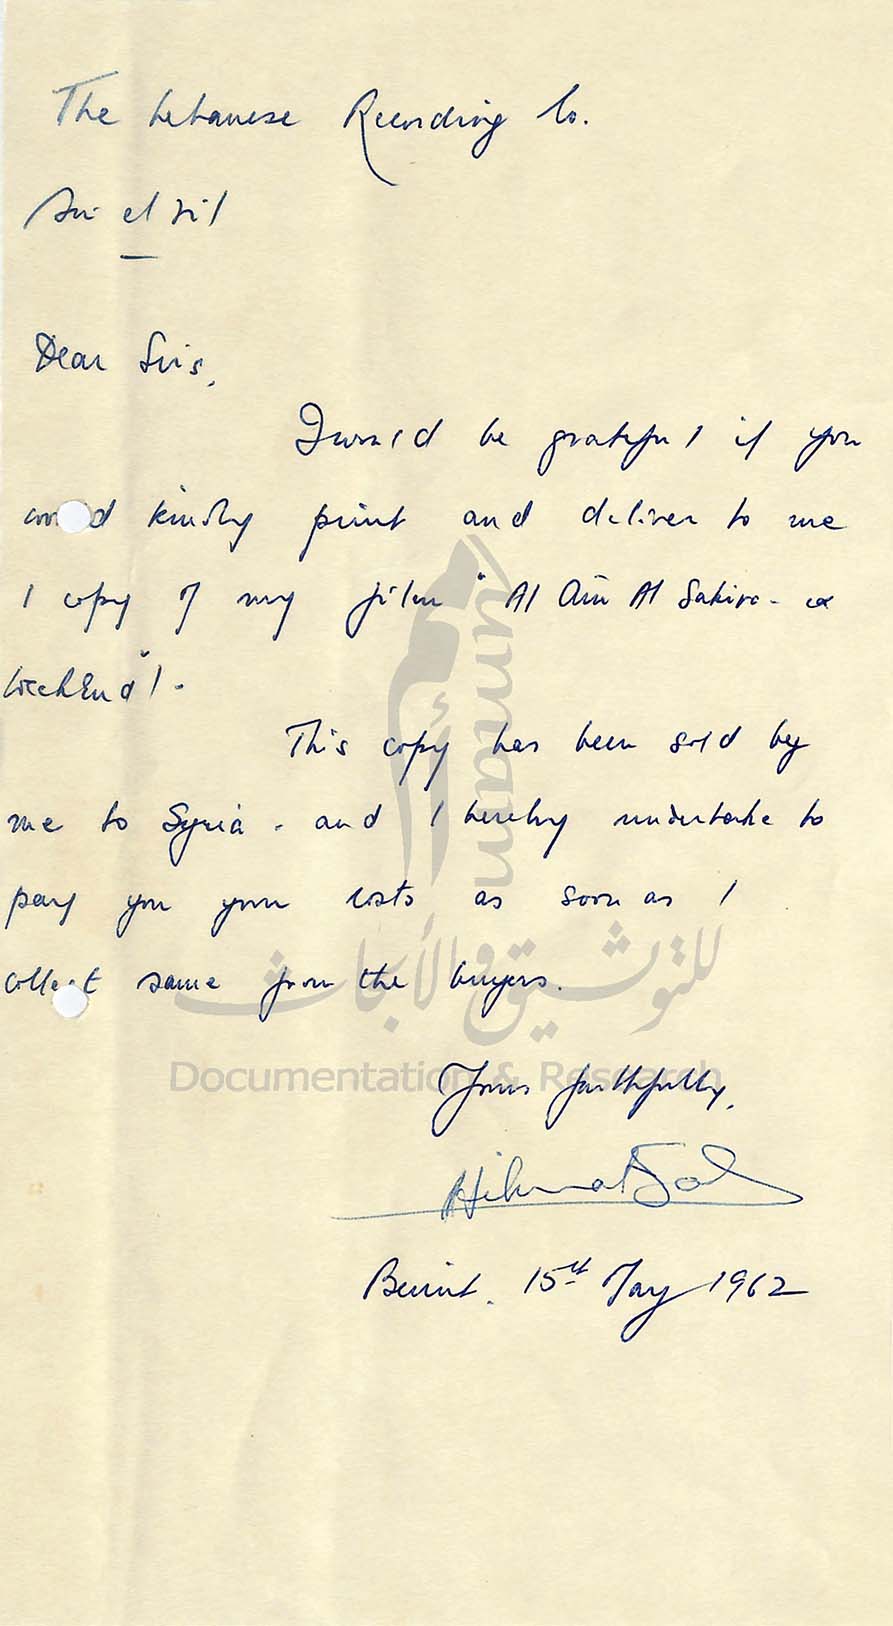 The Lebanese Recording Co.
Sin el Fil
Dear Sirs,
I would be grateful if you
would kindly print and deliver to me
1 copy of my film "Al Ain Al Sakira - ex
Weekend".
This copy has been sold by
me to Syria - and I hereby undertake to
pay you your costs as soon as I
collect same from the buyers.
Yours faithfully,
Hikmat
Beirut. 15th May 1962
umam
أمم
للتوثيق والأبحاث
Documentation & Research